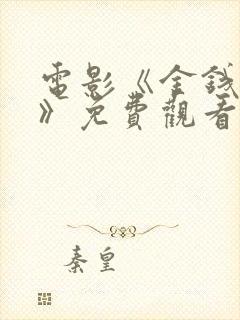 電影《金錢
》免費觀看
秦皇